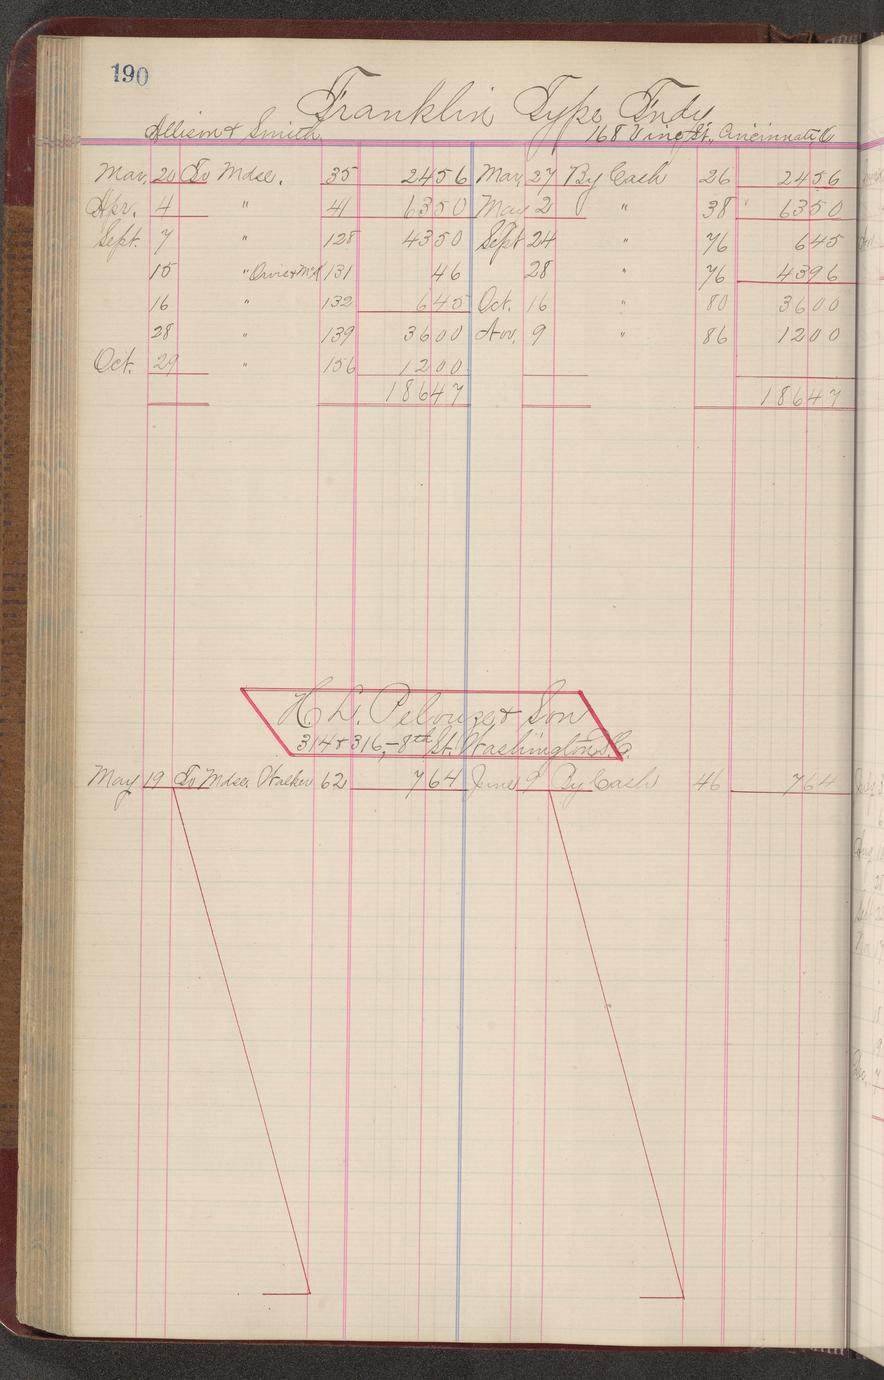 190
Franklin Type Fndy
Allison & Smith 168 Vine St., Cincinnati, O
Mar. 20 To Mdse. 35 2456 Mar. 27 By Cash 26 2456
Apr. 4 " 41 6350 May 2 " 38 6350
Sept. 7 " 128 4350 Sept 24 " 76 645
15 " 131 46 28 " 76 4396
16 " 132 645 Oct. 16 " 80 3600
28 " 139 3600 Nov. 9 " 86 1200
Oct. 29 " 156 1200
18647 18647
H. L. Pelouze & Son
314 & 316,-8th St. Washington D.C.
May 19 To Mdse. Walker 62 764 June 9 By Cash 46 764